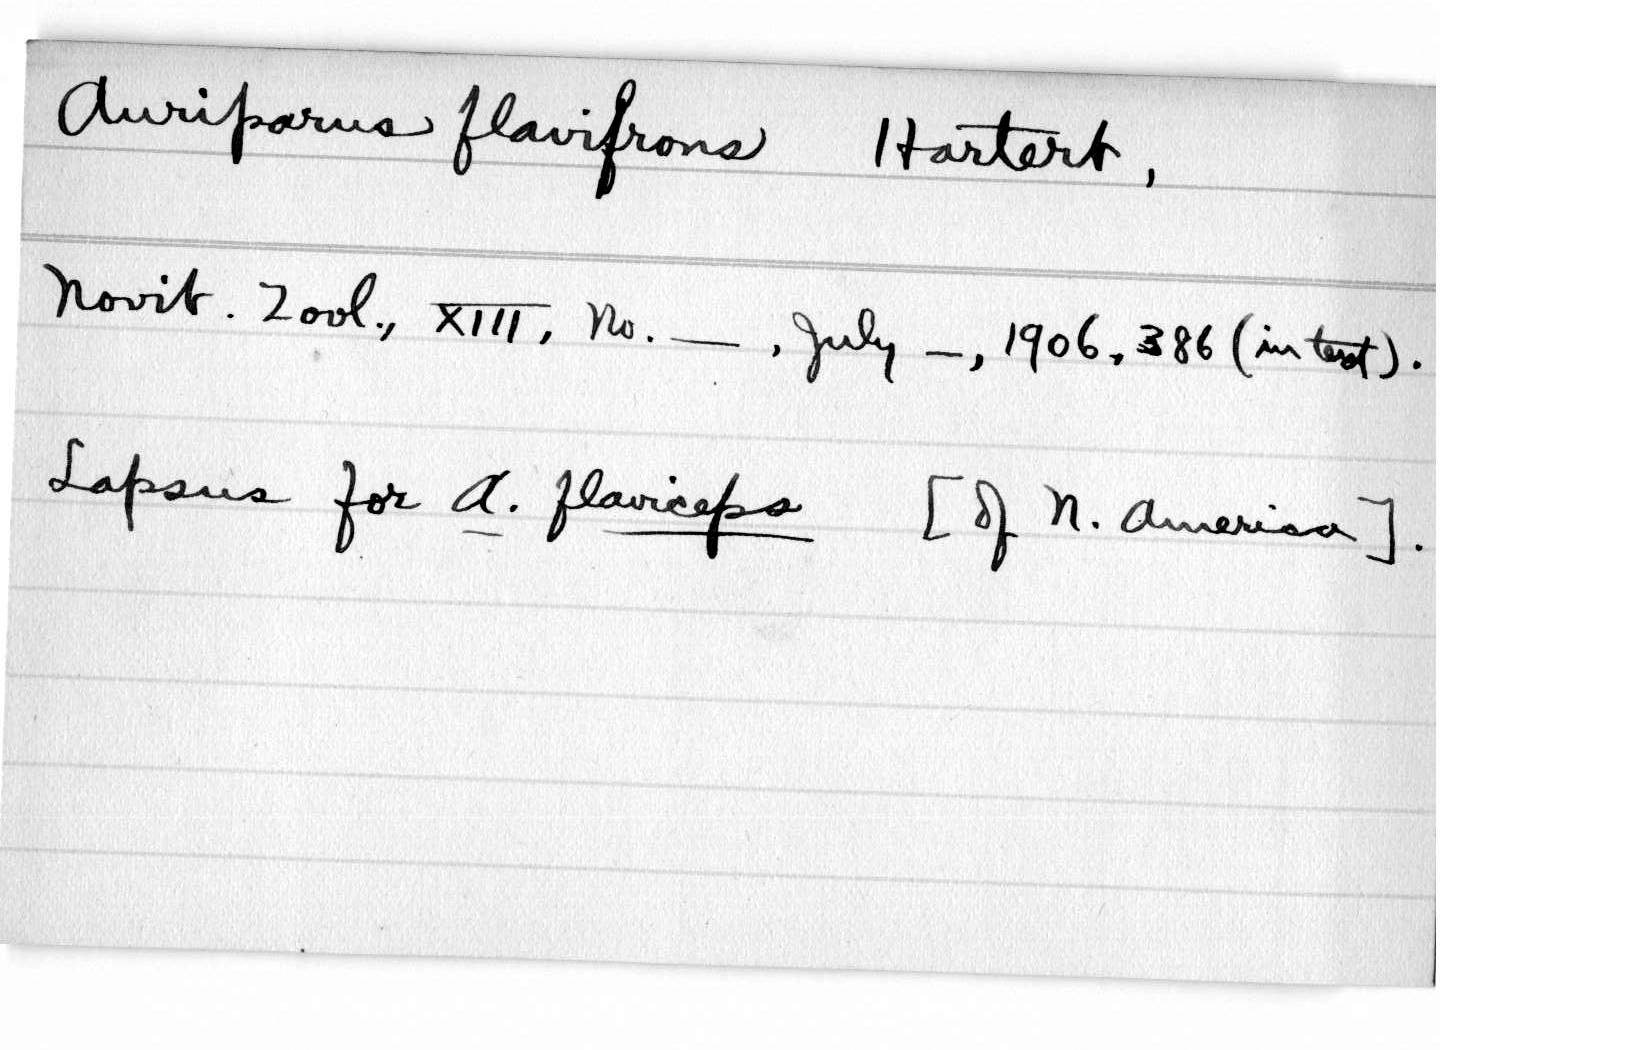 Auriparus flavifrons Hartert,
Novit. Zool., XIII, No. —, July —, 1906, 386 (in text).
Lapsus for A. flaviceps [Of N. America].